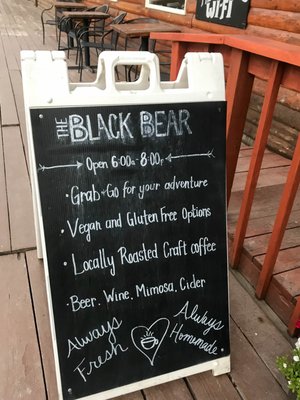 WiFi
THE BLACK BEAR
Open 6:00a - 8:00p
· Grab + Go for your adventure
· Vegan and Gluten Free Options
· Locally Roasted Craft coffee
· Beer, Wine, Mimosa, Cider
Always Fresh
Always Homemade